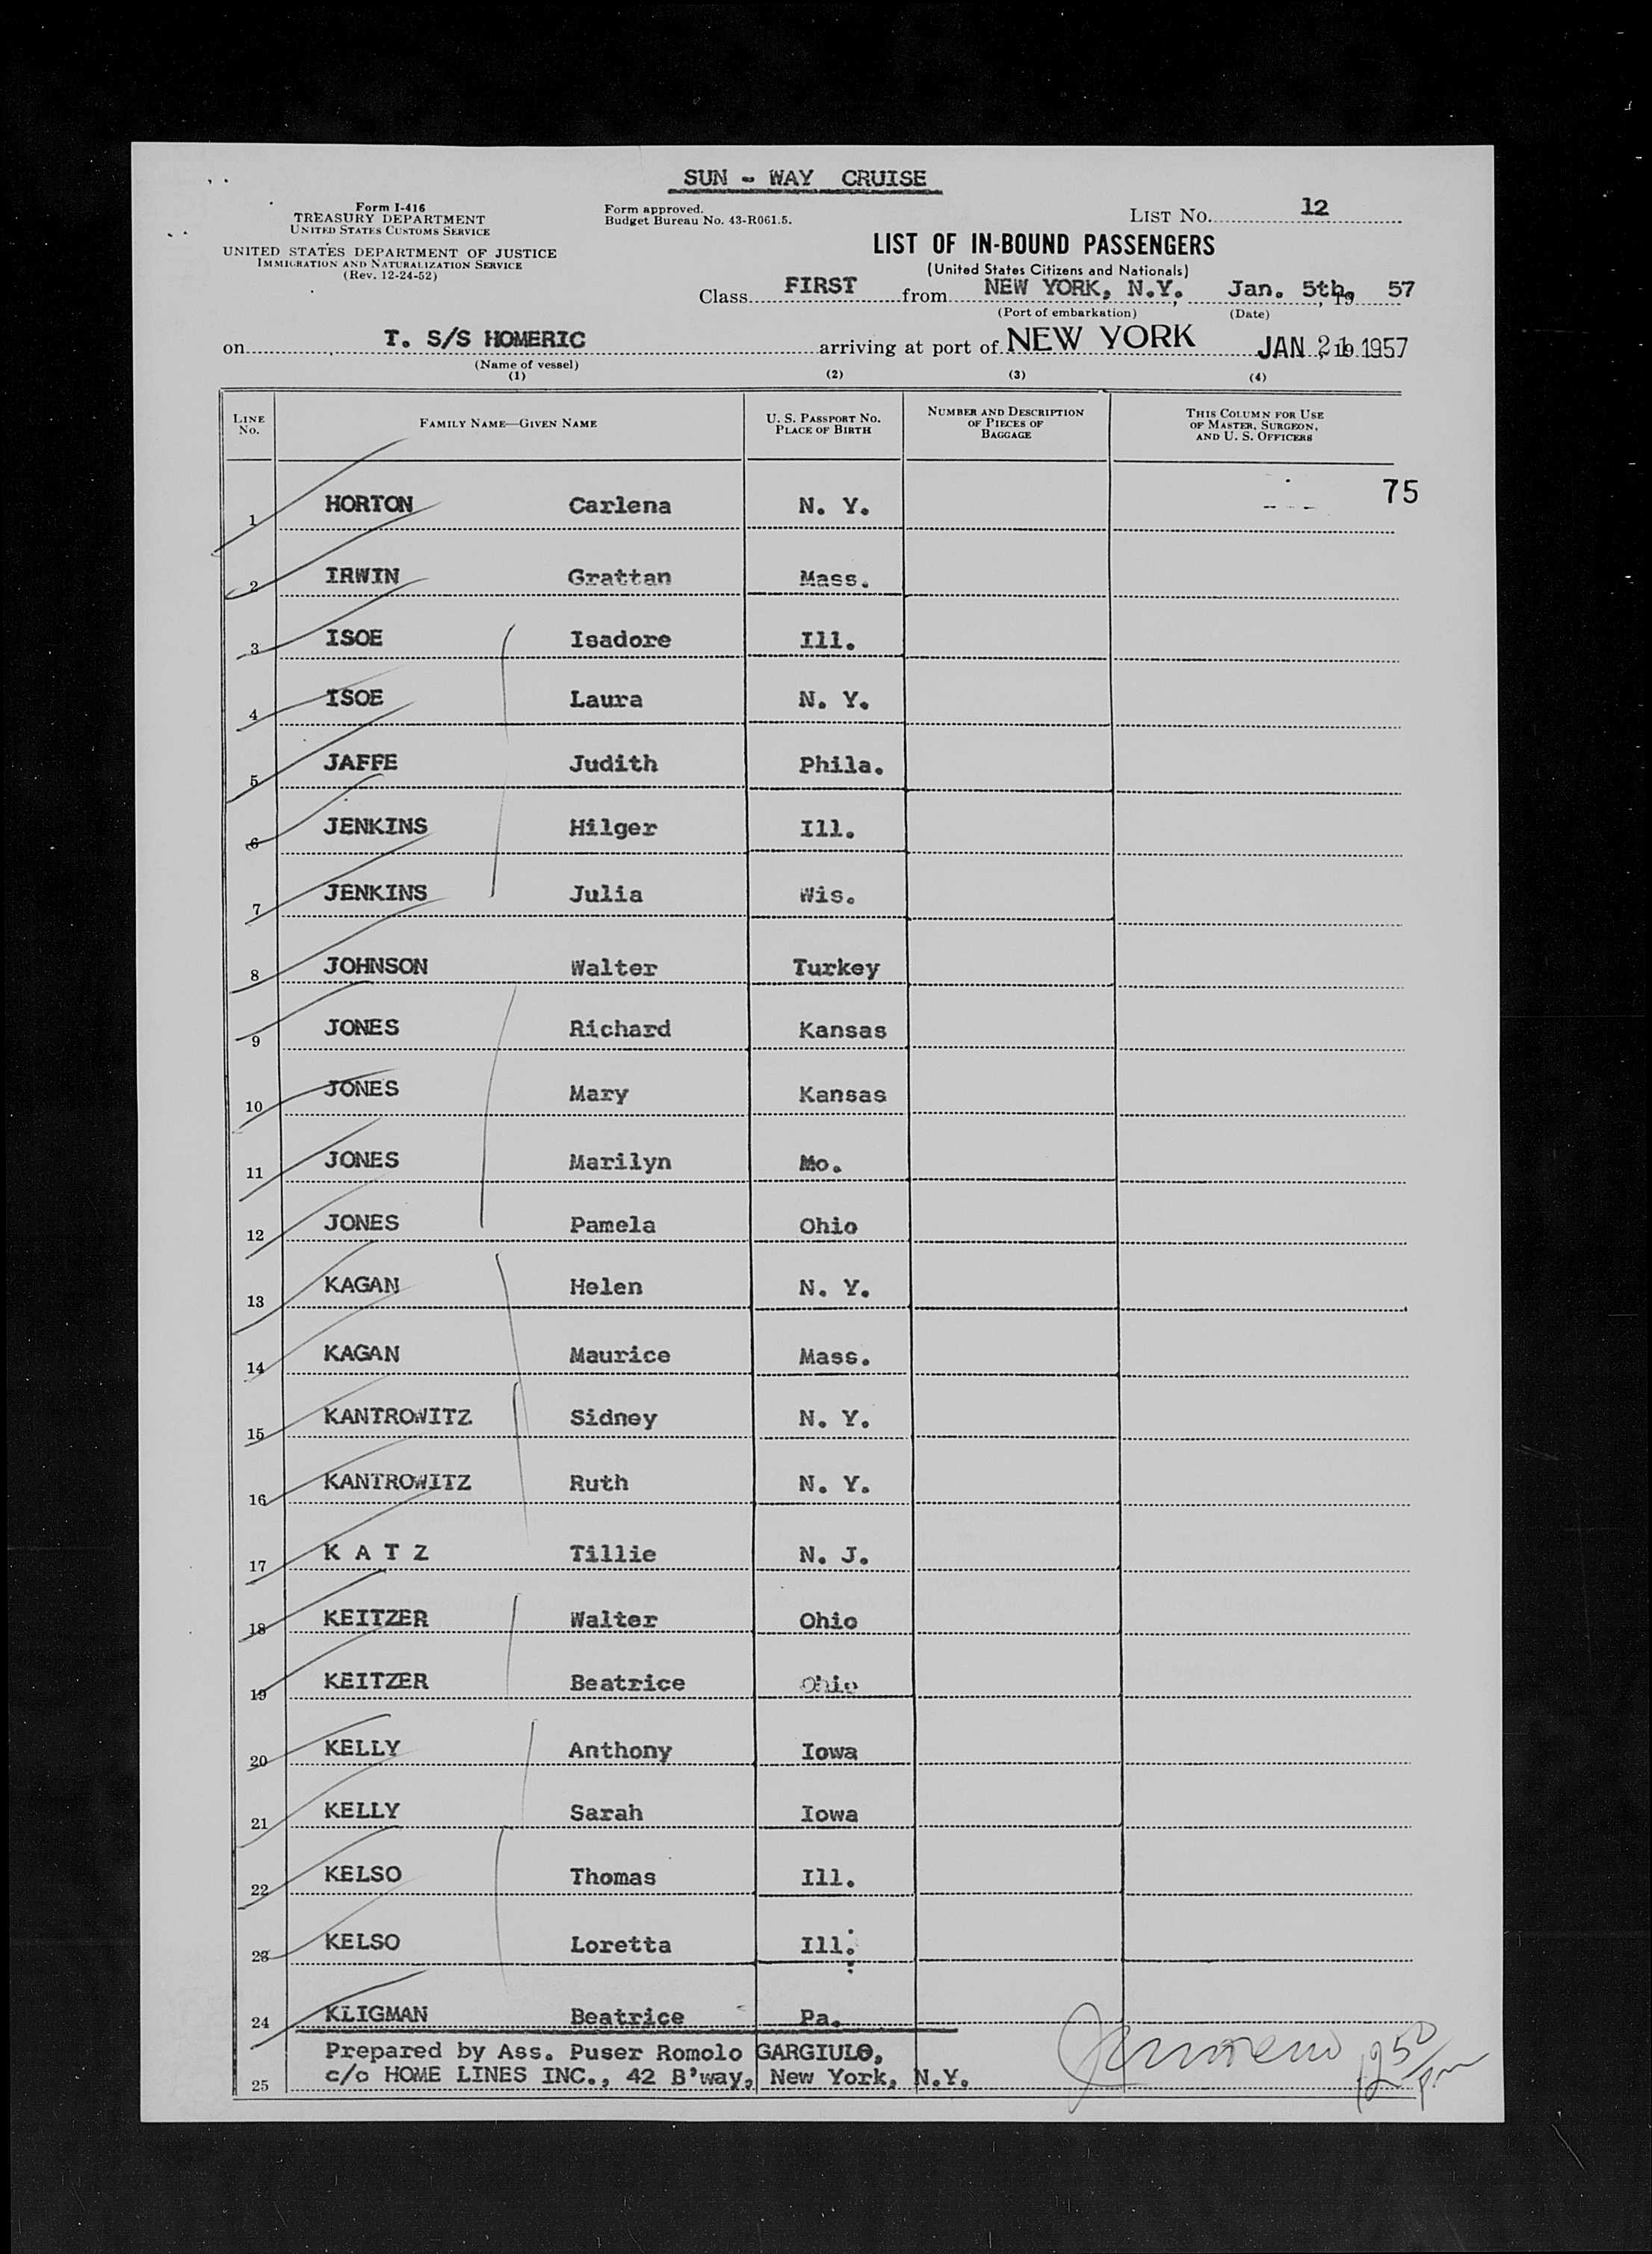 SUN - WAY CRUISE
Form I-416
TREASURY DEPARTMENT
UNITED STATES CUSTOMS SERVICE
UNITED STATES DEPARTMENT OF JUSTICE
IMMIGRATION AND NATURALIZATION SERVICE
(Rev. 12-24-52)
Form approved.
Budget Bureau No. 43-R061.5.
LIST No. 12
LIST OF IN-BOUND PASSENGERS
(United States Citizens and Nationals)
Class FIRST from NEW YORK, N.Y. , Jan. 5th, 19 57
(Port of embarkation) (Date)
on T. S/S HOMERIC arriving at port of NEW YORK JAN 21 1957
(Name of vessel)
(1) (2) (3) (4)
LINE No. FAMILY NAME—GIVEN NAME U. S. PASSPORT No. PLACE OF BIRTH NUMBER AND DESCRIPTION OF PIECES OF BAGGAGE THIS COLUMN FOR USE OF MASTER, SURGEON, AND U. S. OFFICERS
75
1 HORTON Carlena N. Y.
2 IRWIN Grattan Mass.
3 ISOE Isadore Ill.
4 ISOE Laura N. Y.
5 JAFFE Judith Phila.
6 JENKINS Hilger Ill.
7 JENKINS Julia Wis.
8 JOHNSON Walter Turkey
9 JONES Richard Kansas
10 JONES Mary Kansas
11 JONES Marilyn Mo.
12 JONES Pamela Ohio
13 KAGAN Helen N. Y.
14 KAGAN Maurice Mass.
15 KANTROWITZ Sidney N. Y.
16 KANTROWITZ Ruth N. Y.
17 K A T Z Tillie N. J.
18 KEITZER Walter Ohio
19 KEITZER Beatrice Ohio
20 KELLY Anthony Iowa
21 KELLY Sarah Iowa
22 KELSO Thomas Ill.
23 KELSO Loretta Ill.
24 KLIGMAN Beatrice Pa.
Prepared by Ass. Puser Romolo GARGIULO,
25 c/o HOME LINES INC., 42 B'way, New York, N.Y.
12 50 pm